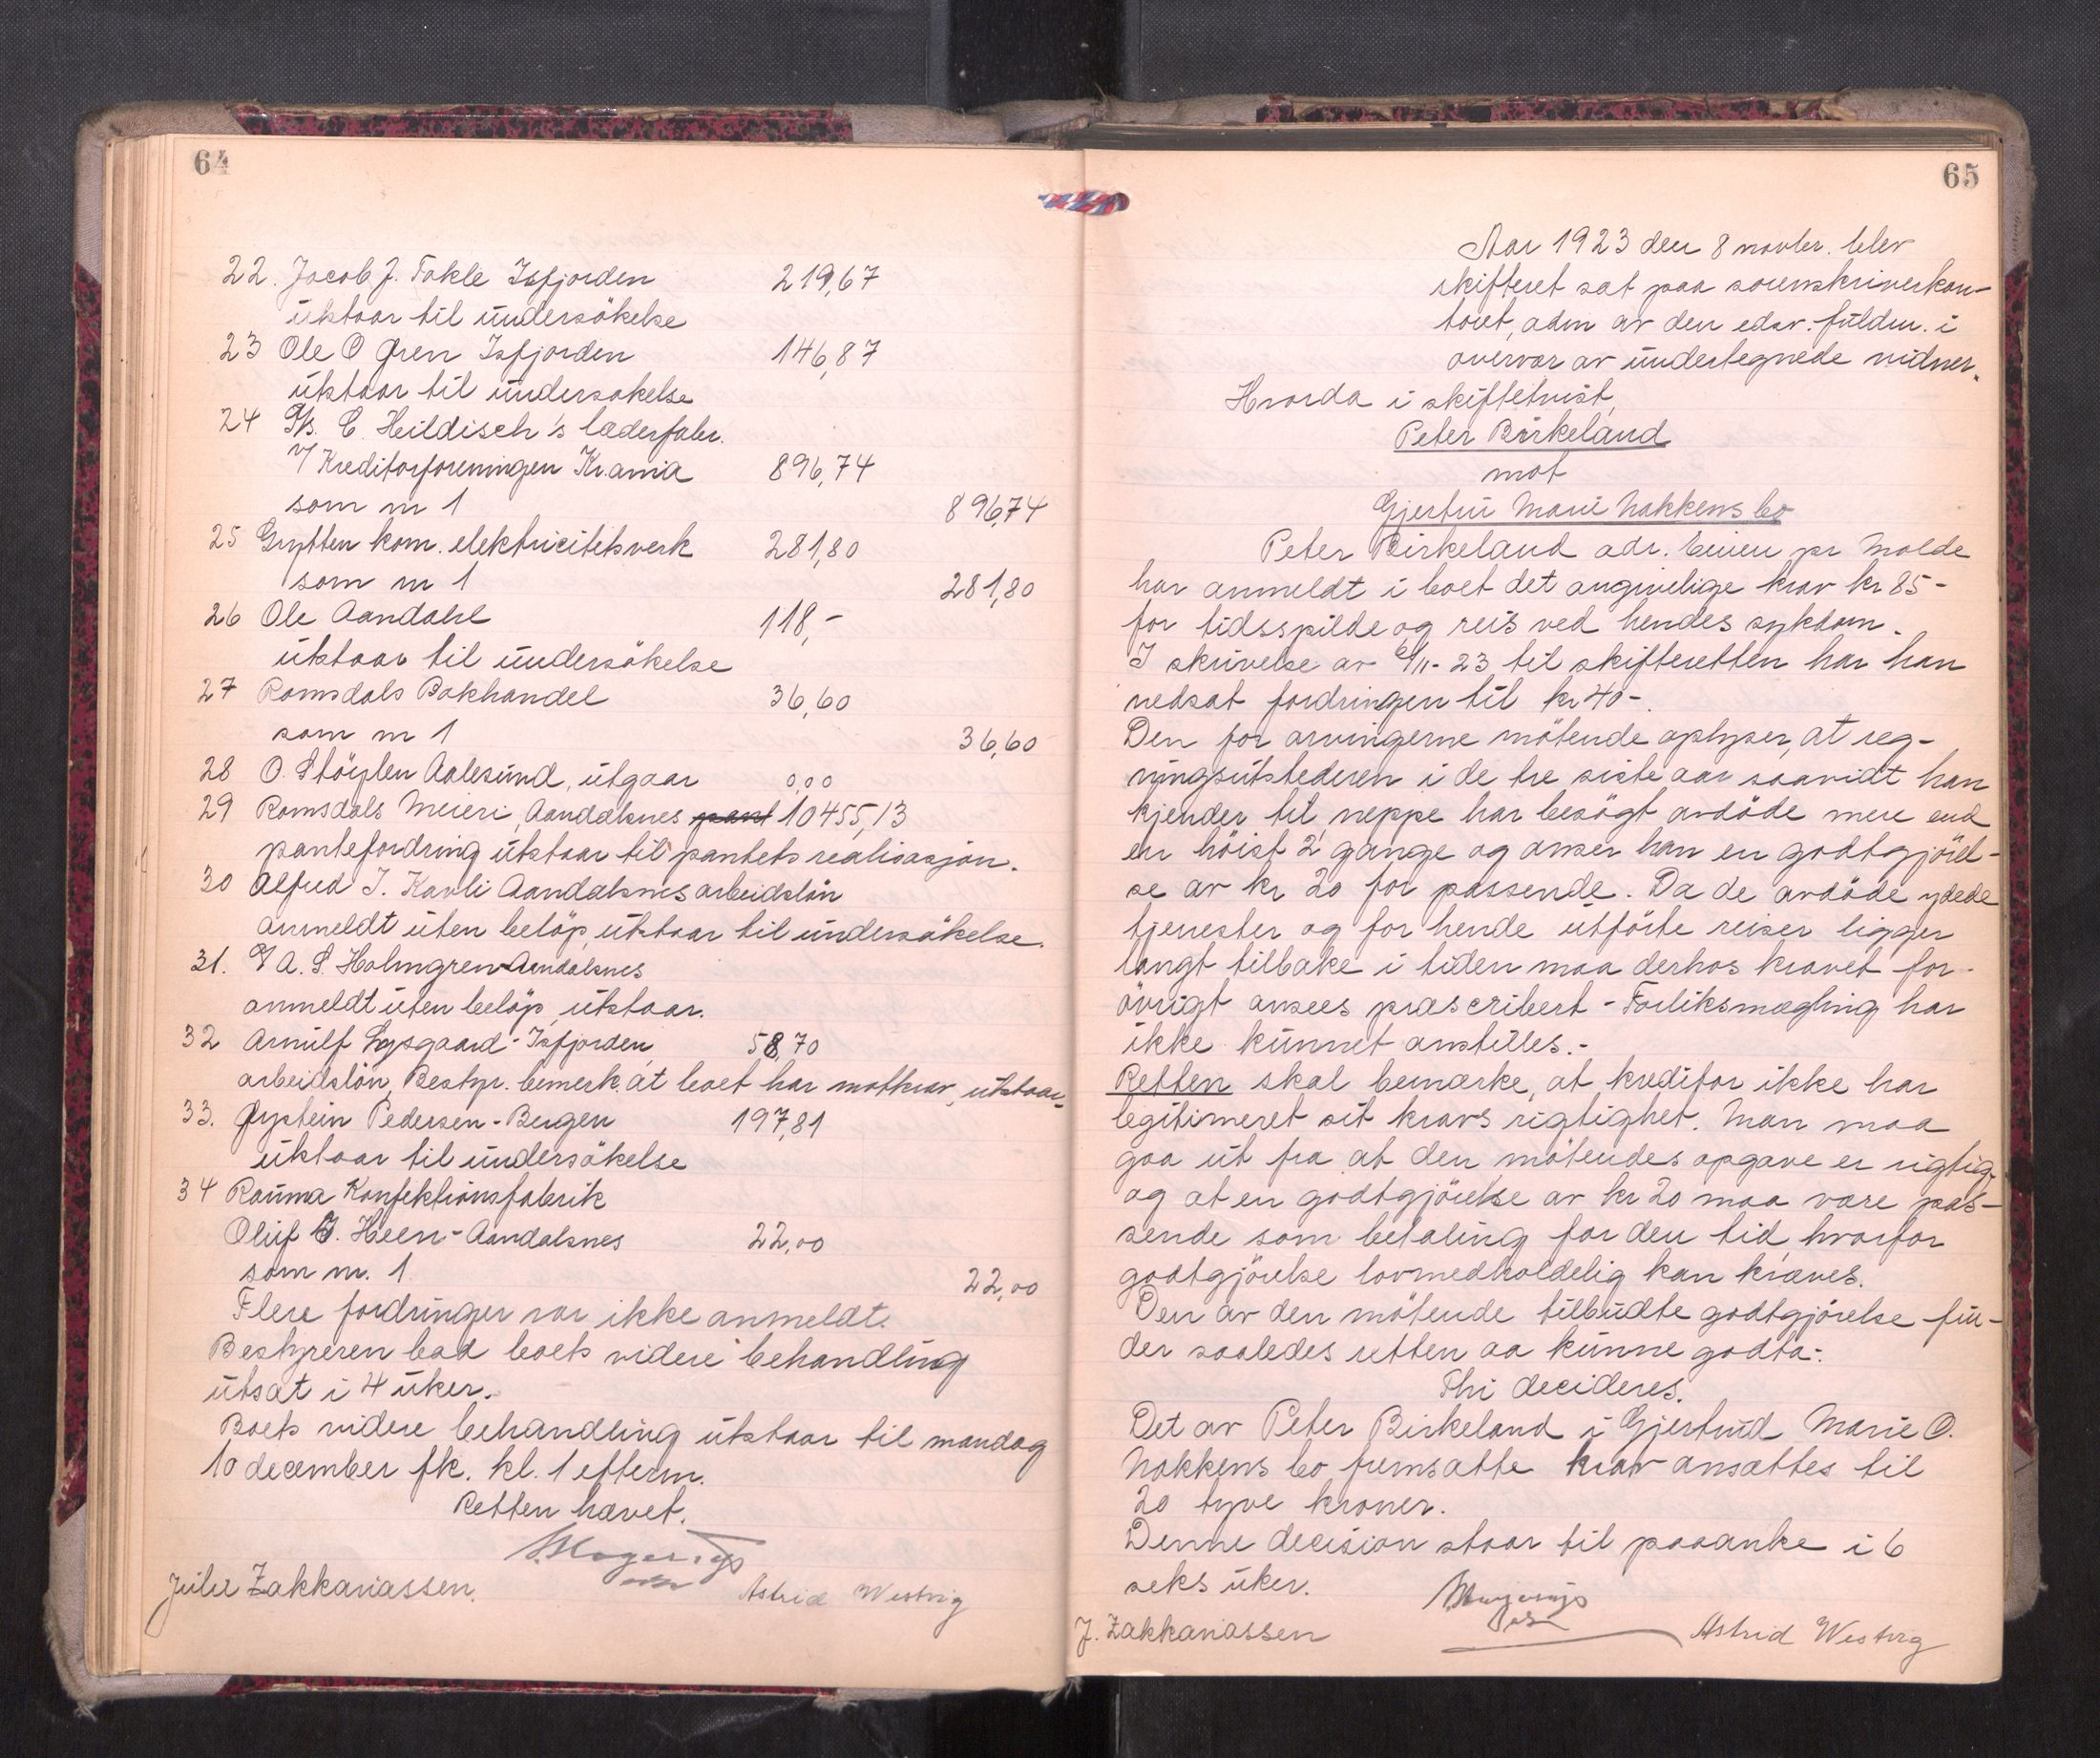 64
22. Jacob J. Tokle Isfjorden 219,67
utstaar til undersökelse
23 Ole O Gren Isfjorden 146,87
utstaar til undersökelse
24 A/s. C. Heildisch's læderfabr.
v/ Kreditorforeningen Kr.ania 896,74
som nr 1 896,74
25 Grytten kom. elektricitetsverk 281,80
som nr 1 281,80
26 Ole Aandahl 118,-
utstaar til undersökelse
27 Romsdals Bokhandel 36,60
som nr 1 36,60
28 O. Stöylen Aalesund, utgaar 0,00
29 Romsdals Meieri, Aandalsnes pant 10455,13
pantefordring utstaar til pantets realisasjon.
30 Alfred J. Kavli Aandalsnes arbeidslön
anmeldt uten belöp, utstaar til undersökelse.
31. A. S. Holmgren Aandalsnes
anmeldt uten belöp, utstaar.
32 Arnulf Lysgaard - Isfjorden, 58,70
arbeidslön, Bestyr. bemerk. at boet har motkrav, utstaar
33. Øystein Pedersen - Bergen 197,81
utstaar til undersökelse
34 Rauma Konfektionsfabrik
Oluf J. Heen - Aandalsnes 22,00
som nr. 1 22,00
Flere fordringer var ikke anmeldt.
Bestyreren bad boets videre behandling
utsat i 4 uker.
Boets videre behandling utstaar til mandag
10 december fk. kl. 1 efterm.
Retten hævet.
Julie Zakkariassen. Astrid Westvig
65
Aar 1923 den 8 novbr. blev
skifteret sat paa sorenskriverkon-
toret, adm av den edsv. fuldm. i
overvær av undertegnede vidner.
Hvorda i skiftetvist,
Peter Birkeland
mot
Gjertru Marie Nakkens bo
Peter Birkeland adr. Eiven pr Molde
har anmeldt i boet det angivelige krav kr 85-
for tidsspilde og reis ved hendes sykdom.
I skrivelse av 6/11-23 til skifteretten har han
nedsat fordringen til kr 40-.
Den for arvingerne mötende oplyser, at reg-
ningsutstederen i de tre siste aar saavidt han
kjender til, neppe har besögt avdöde mere end
en höist 2 gange og anser han en godtgjörel-
se av kr 20 for passende. Da de avdöde ydede
tjenester og for hende utförte reiser ligger
langt tilbake i tiden maa derhos kravet for-
övrigt ansees præscribert - Forliksmægling har
ikke kunnet anstilles.-
Retten skal bemærke, at kreditor ikke har
legitimeret sit kravs rigtighet. Man maa
gaa ut fra at den mötendes opgave er rigtig,
og at en godtgjörelse av kr 20 maa være pas-
sende som betaling for den tid, hvorfor
godtgjörelse lovmedholdelig kan kræves.
Den av den mötende tilbudte godtgjörelse fin-
der saaledes retten aa kunne godta:
Thi decideres.
Det av Peter Birkeland i Gjertrud Marie O.
Nakkens bo fremsatte krav ansættes til
20 tyve kroner.
Denne decision staar til paaanke i 6
seks uker.
J. Zakkariassen Astrid Westvig